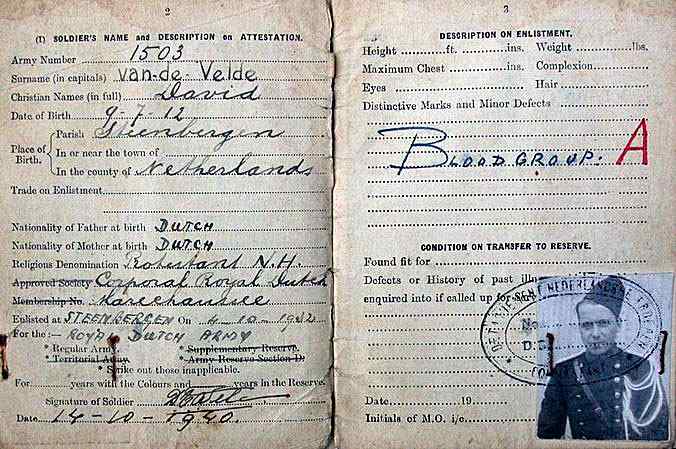 2
(I) SOLDIER'S NAME AND DESCRIPTION ON ATTESTATION.
Army Number 1503
Surname (in capitals) van-de-Velde
Christian Names (in full) David
Date of Birth 9-7-12
Place of Birth. Parish Steenbergen
In or near the town of
In the county of Netherlands
Trade on Enlistment
Nationality of Father at birth DUTCH
Nationality of Mother at birth DUTCH
Religious Denomination Protestant N.H.
Approved Society Corporal Royal Dutch
Membership No. Marechaussee
Enlisted at STEENBERGEN On 4-10-1932
For the :— ROYAL DUTCH ARMY
* Regular Army * Supplementary Reserve.
* Territorial Army. * Army Reserve Section D.
* Strike out those inapplicable.
For years with the Colours and years in the Reserve.
Signature of Soldier
Date 14-10-1940.
3
DESCRIPTION ON ENLISTMENT.
Height ft. ins. Weight lbs.
Maximum Chest ins. Complexion
Eyes Hair
Distinctive Marks and Minor Defects
BLOODGROUP. A
CONDITION ON TRANSFER TO RESERVE.
Found fit for
Defects or History of past
enquired into if called up for
NEDERLANDSCHE
No.
D.
Date 19
Initials of M.O. i/c